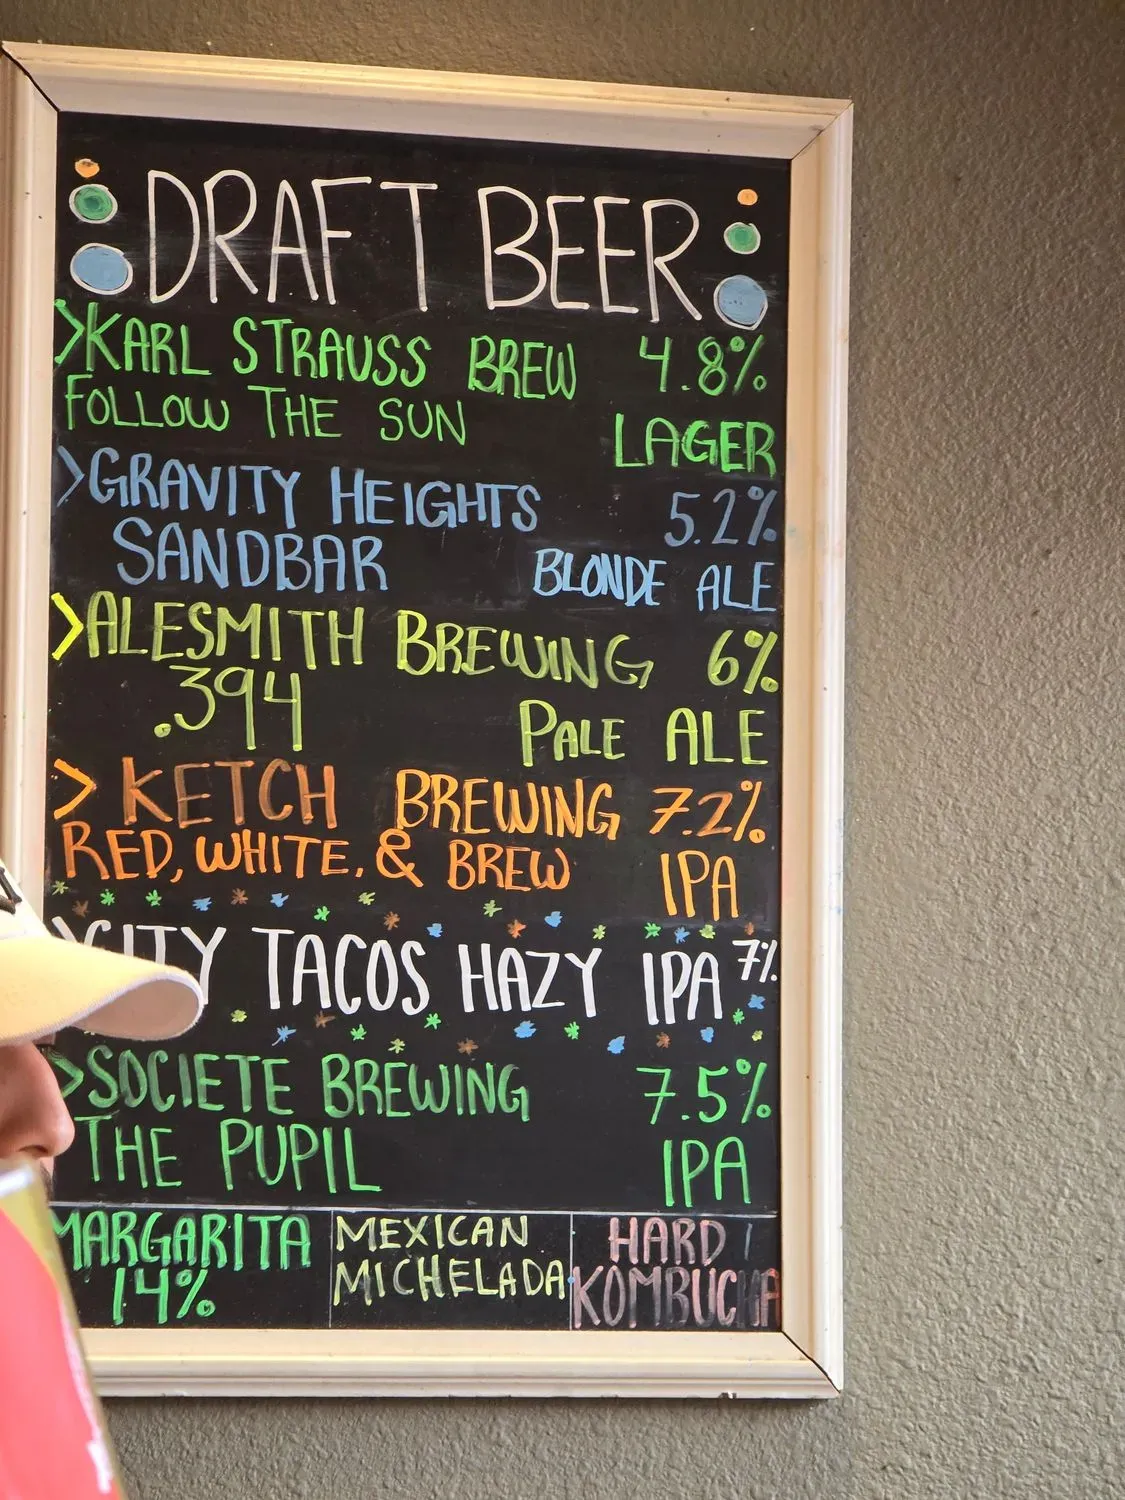 DRAFT BEER
>KARL STRAUSS BREW 4.8%
FOLLOW THE SUN LAGER
>GRAVITY HEIGHTS 5.2%
SANDBAR BLONDE ALE
>ALESMITH BREWING 6%
.394 PALE ALE
> KETCH BREWING 7.2%
RED, WHITE, & BREW IPA
>CITY TACOS HAZY IPA 7%
>SOCIETE BREWING 7.5%
THE PUPIL IPA
MARGARITA
14%
MEXICAN
MICHELADA
HARD
KOMBUCHA